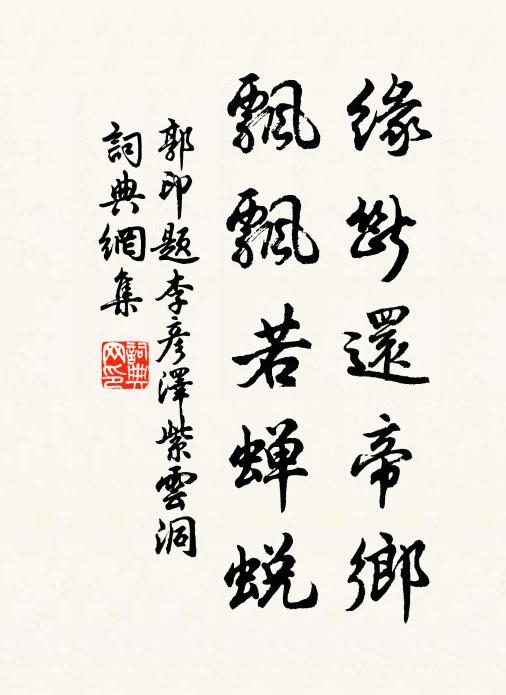 緣斷還帝鄉
飄飄若蟬蛻
郭印題李彥澤紫雲洞
詞典網集
詞典网印